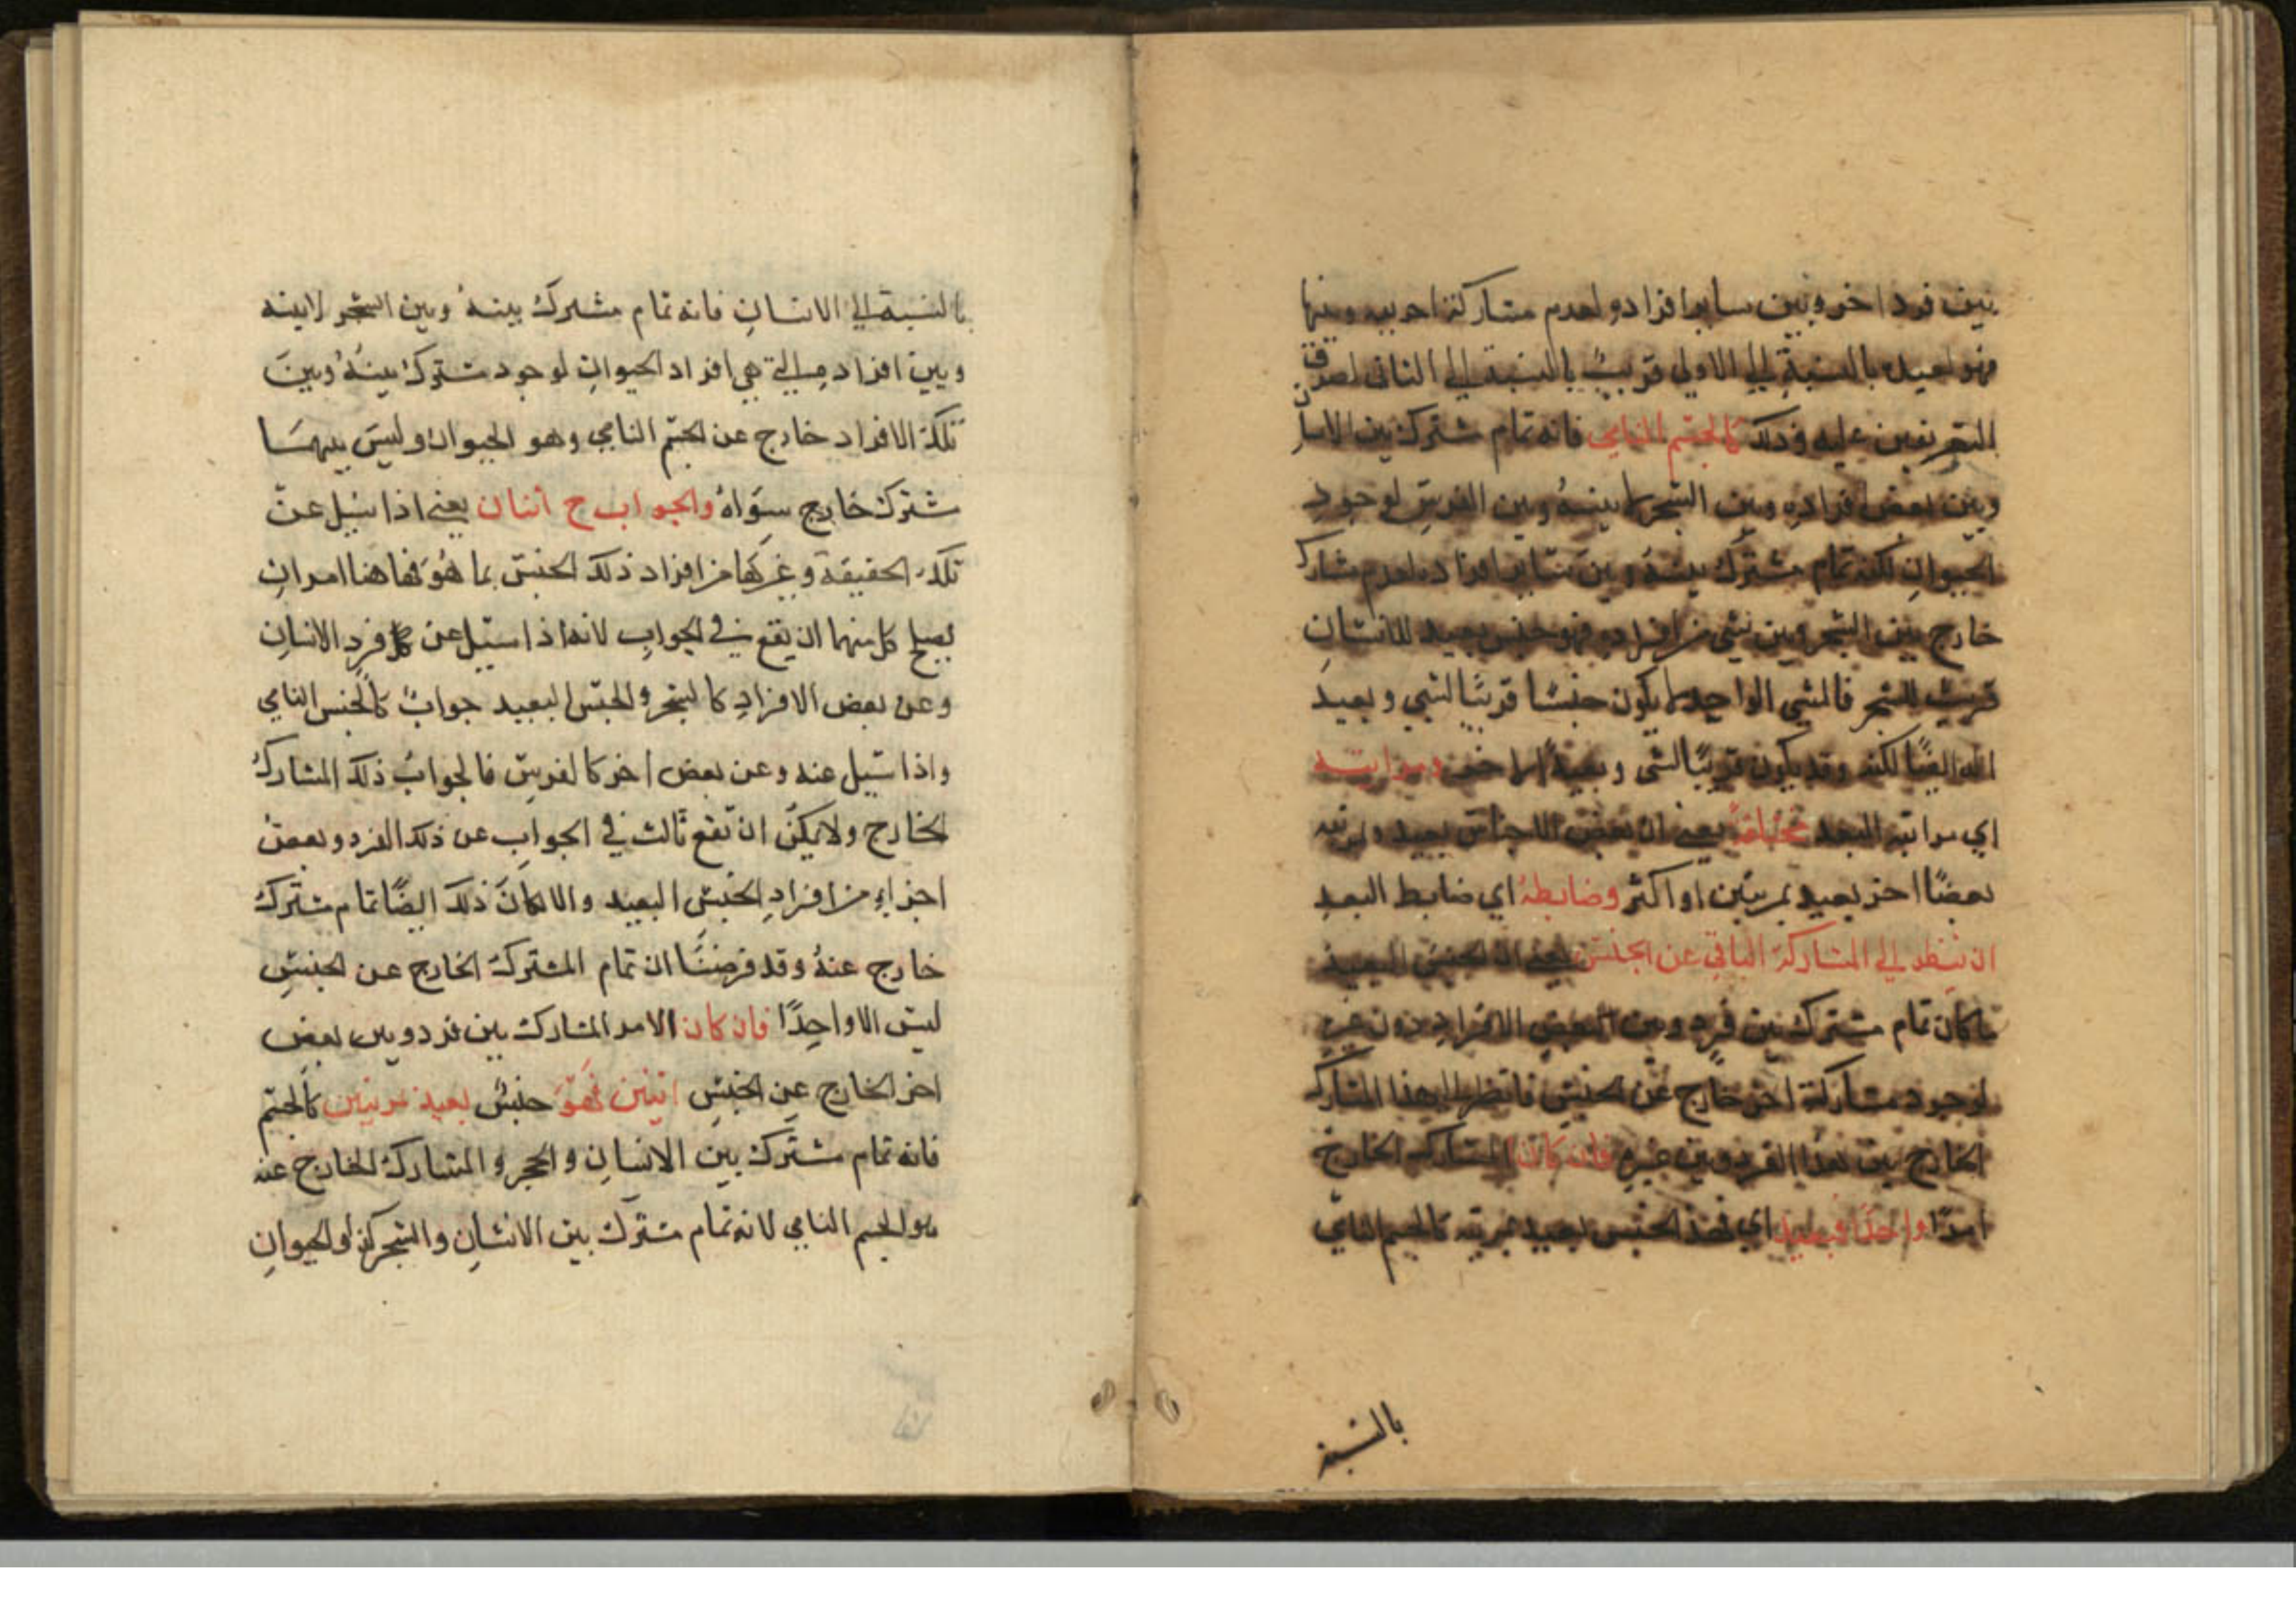 بين فرد اخر وبين ساير افراده لعدم مشاركة اخر بينه وبينها
فهو بعيد بالنسبة الي الاولي قريبٌ بالنسبة الي الثاني لصدق
التعريفين عليه وذلك كالجسم النامي فانه تمام مشترك بين الانسان
وبين بعض افراده وبين الشجر لا بينهُ وبين الفرس لوجودِ
الحيوانِ لكنه تمام مشترك بينهُ وبين سَاير افراده لعدم مشارك
خارج بين الشجر وبين شي من افراده فهو جنس بعيد للانسَانِ
قريب للشجر فالشي الواحد لا يكون جنسًا قريبًا لشي وبعيد
له ايضًا لكنه وقد يكون قريبًا لشي وبعيدًا لاخر ومراتبه
اي مراتب البعد مختلفة يعني ان بعض الاجناس بعيد بمرتبه
بعضًا اخر بعيد بمرتبتين او اكثر وضابطهُ اي ضابط البعدِ
ان ينظر الي المشاركة الباقي عن الجنس يعني ان الجنس البعيد
ما كان تمام مشترك بين فردٍ وبين البعض الافرادِ دون غيره
لوجود مشاركة اخر خارج عن الجنسِ فانظر الي هذا المشارك
الخارج بين هذا الفرد وبين غيرهِ فان كان المشارك الخارج
امرًا واحدًا فبعيد اي فهذا الجنس بعيد بمرتبه كالجسم النامي
بالنسبة
بالنسبة الي الانسانِ فانه تمام مشترك بينهُ وبين الشجر لا بينه
وبين افراده التي هي افراد الحيوانِ لوجود مشترك بينهُ وبينَ
تلك الافراد خارج عن الجسم النامي وهو الحيوان وليسَ بينهمَا
مشترك خارج سِوَاهُ والجواب ح اثنان يعني اذا سُيل عن
تلك الحقيقة وغيرِها من افراد ذلك الجنس بما هُو فهاهنا امرانِ
يصلح كل منهما ان يقع في الجوابِ لانه اذا سُيل عن كل فردِ الانسانِ
وعن بعض الافرادِ كالشجر والجنس البعيد جوابٌ كالجنس النامي
واذا سُيل عنه وعن بعض اخر كالفرسِ فالجوابُ ذلك المشاركُ
الخارج ولا يمكنُ ان تقع ثالث في الجوابِ عن ذلك الفرد وبعض
اجزاءِ من افرادِ الجنسِ البعيد والا لكانَ ذلك ايضًا تمام مشترك
خارج عنهُ وقد فرضنَا ان تمام المشترك الخارج عن الجنسِ
ليس الا واحِدًا فان كان الامر المشارك بين فرد وبين بعض
اخر الخارج عن الجنسِ اثنين فهوَ جنسٌ بعيد مرتبتين كالجسم
فانه تمام مشترك بين الانسانِ والحجر والمشارك الخارج عنه
هو الجسم النامي لانه تمام مشترك بين الانسَانِ والشجر كذلو الحيوانِ